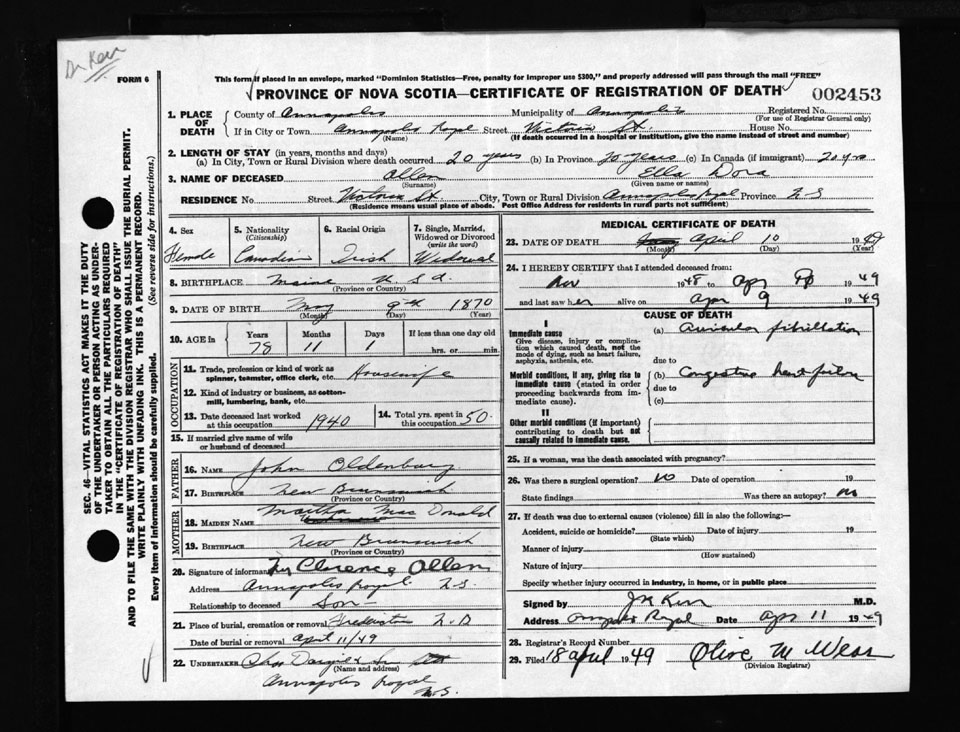 Dr Kerr
FORM 6
This form if placed in an envelope, marked "Dominion Statistics—Free, penalty for improper use $300," and properly addressed will pass through the mail "FREE"
PROVINCE OF NOVA SCOTIA—CERTIFICATE OF REGISTRATION OF DEATH
002453
SEC. 46—VITAL STATISTICS ACT MAKES IT THE DUTY
OF THE UNDERTAKER OR PERSON ACTING AS UNDER-
TAKER TO OBTAIN ALL THE PARTICULARS REQUIRED
IN THE "CERTIFICATE OF REGISTRATION OF DEATH"
AND TO FILE THE SAME WITH THE DIVISION REGISTRAR WHO SHALL ISSUE THE BURIAL PERMIT.
WRITE PLAINLY WITH UNFADING INK. THIS IS A PERMANENT RECORD.
Every item of information should be carefully supplied. (See reverse side for instructions.)
1. PLACE OF DEATH
County of Annapolis Municipality of Annapolis Registered No.
(For use of Registrar General only)
If in City or Town Annapolis Royal Street Victoria St House No.
(Name) (If death occurred in a hospital or institution, give the name instead of street and number)
2. LENGTH OF STAY (in years, months and days)
(a) In City, Town or Rural Division where death occurred 20 years (b) In Province 20 years (c) In Canada (if immigrant) 20 yrs
3. NAME OF DECEASED Allen Ella Dora
(Surname) (Given name or names)
RESIDENCE No. Street Victoria St City, Town or Rural Division Annapolis Royal Province N.S
(Residence means usual place of abode. Post Office Address for residents in rural parts not sufficient)
4. Sex Female
5. Nationality (Citizenship) Canadian
6. Racial Origin Irish
7. Single, Married, Widowed or Divorced (write the word) Widowed
8. BIRTHPLACE Maine U.S.A.
(Province or Country)
9. DATE OF BIRTH May 9th 1870
(Month) (Day) (Year)
10. AGE in Years 78 Months 11 Days 1 If less than one day old
hrs. or min.
OCCUPATION
11. Trade, profession or kind of work as spinner, teamster, office clerk, etc. Housewife
12. Kind of industry or business, as cotton-mill, lumbering, bank, etc.
13. Date deceased last worked at this occupation 1940
14. Total yrs. spent in this occupation 50
15. If married give name of wife or husband of deceased
FATHER
16. NAME John Oldenburg
17. BIRTHPLACE New Brunswick
(Province or Country)
MOTHER
18. MAIDEN NAME Martha Mac Donald
19. BIRTHPLACE New Brunswick
(Province or Country)
20. Signature of informant Clarence Allen
Address Annapolis Royal N.S.
Relationship to deceased Son
21. Place of burial, cremation or removal Fredericton N.B
Date of burial or removal April 11/49
22. UNDERTAKER Chas Dargie & Son
(Name and address)
Annapolis Royal
N.S.
MEDICAL CERTIFICATE OF DEATH
23. DATE OF DEATH April 10 1949
(Month) (Day) (Year)
24. I HEREBY CERTIFY that I attended deceased from:
Nov 1948 to Apr 1949
and last saw her alive on Apr 9 1949
CAUSE OF DEATH
I
Immediate cause
Give disease, injury or complication which caused death, not the mode of dying, such as heart failure, asphyxia, asthenia, etc.
(a) Auricular fibrillation
due to
Morbid conditions, if any, giving rise to immediate cause (stated in order proceeding backwards from immediate cause).
(b) Congestive heart failure
due to
(c)
II
Other morbid conditions (if important) contributing to death but not causally related to immediate cause.
25. If a woman, was the death associated with pregnancy?
26. Was there a surgical operation? No Date of operation 19
State findings Was there an autopsy? No
27. If death was due to external causes (violence) fill in also the following:—
Accident, suicide or homicide? Date of injury 19
(State which)
Manner of injury
(How sustained)
Nature of injury
Specify whether injury occurred in industry, in home, or in public place
Signed by J K Kerr M.D.
Address Annapolis Royal Date Apr 11 1949
28. Registrar's Record Number
29. Filed 18 April 1949 Olive M Wear
(Division Registrar)